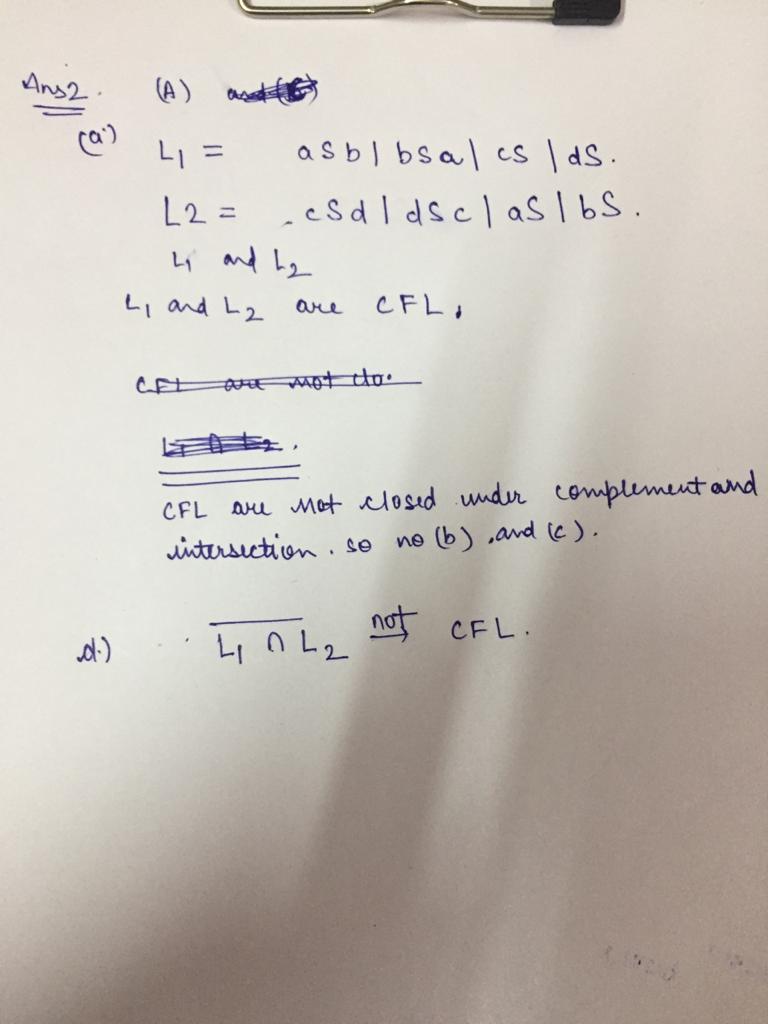 Ans2. (A)
(a) L1 = aSb | bSa | cS | dS.
L2 = cSd | dSc | aS | bS.
L1 and L2
L1 and L2 are CFL.
CFL are not clo.
L1 ∩ L2.
CFL are not closed under complement and
intersection. so no (b) .and (c).
d.) \overline{L1 ∩ L2} not→ CFL.